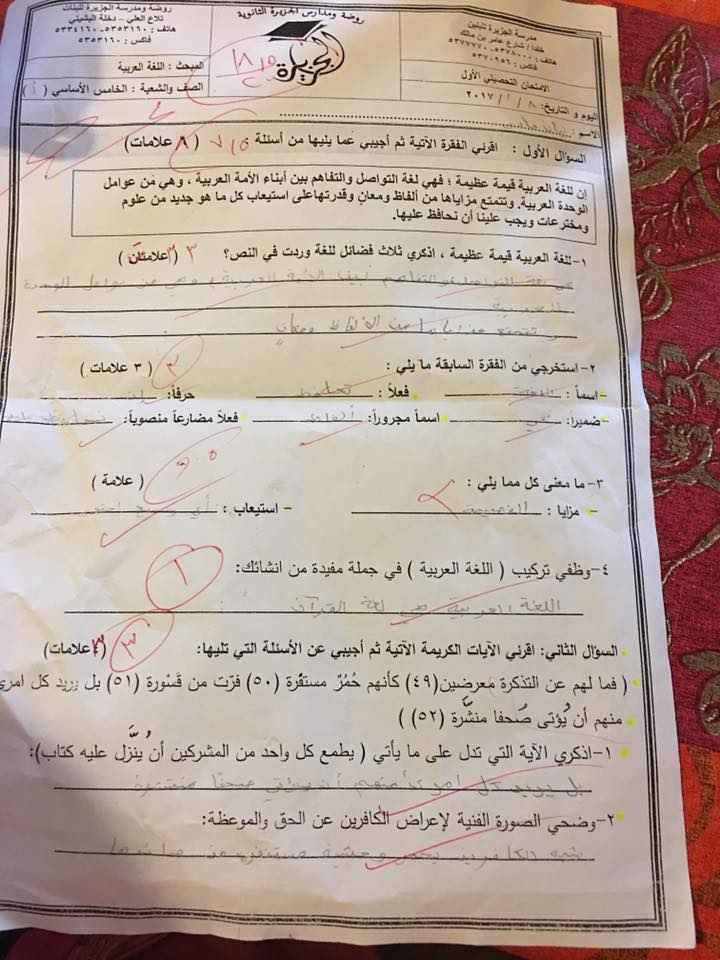 مدرسة الجزيرة للبنين
خلدا / شارع عامر بن مالك
هاتف : ٥٣٧٨٠٠٠ - ٥٣٧٧٧٧٠
فاكس : ٥٣٧٠٩٥٦
روضة ومدارس الجزيرة الثانوية
الجزيرة
١٨,٥
٢٠
روضة ومدرسة الجزيرة للبنات
تلاع العلي – دخلة البشيتي
هاتف : ٥٣٥٣١٦٠ - ٥٣٣٤١٦٠
فاكس : ٥٣٥٣١٦٠
الامتحان التحصيلي الأول
المبحث : اللغة العربية
اليوم و التاريخ: ٨ / ١ / ٢٠١٧
الصف والشعبة : الخامس الأساسي ( أ )
الاسم :
السؤال الأول : اقرئي الفقرة الآتية ثم أجيبي عما يليها من أسئلة ٧,٥ ( ٨ علامات)
إن للغة العربية قيمة عظيمة ؛ فهي لغة التواصل والتفاهم بين أبناء الأمة العربية ، وهي من عوامل
الوحدة العربية. وتتمتع مزاياها من ألفاظ ومعانٍ وقدرتها على استيعاب كل ما هو جديد من علوم
ومخترعات ويجب علينا أن نحافظ عليها.
١-للغة العربية قيمة عظيمة ، اذكري ثلاث فضائل للغة وردت في النص؟ ٣ ( ٣ علامتان )
هي لغة التواصل والتفاهم بين الأمة العربية ، وهي من عوامل الوحدة
العربية
وتتمتع مزاياها من الألفاظ ومعانٍ
٢-استخرجي من الفقرة السابقة ما يلي : ٣ ( ٣ علامات )
-اسماً : اللغة فعلاً : حرفاً:
-ضميراً: هي اسماً مجروراً: ألفاظ فعلاً مضارعاً منصوباً: نحافظ
٠,٥
٣- ما معنى كل مما يلي : ( علامة )
- مزايا : - استيعاب :
٤-وظفي تركيب ( اللغة العربية ) في جملة مفيدة من انشائك: ١
اللغة العربية هي لغة القرآن
السؤال الثاني: اقرئي الآيات الكريمة الآتية ثم أجيبي عن الأسئلة التي تليها: ٣ ( ٣ علامات)
( فما لهم عن التذكرة معرضين(٤٩) كأنهم حُمُرٌ مستنفرة (٥٠) فرّت من قَسْورة (٥١) بل يريد كل امرئ
منهم أن يُؤتى صُحفا منشَّرة (٥٢) )
١-اذكري الآية التي تدل على ما يأتي ( يطمع كل واحد من المشركين أن يُنَّزل عليه كتاب):
بل يريد كل امرئ منهم أن يؤتى صحفا منشرة
٢-وضحي الصورة الفنية لإعراض الكافرين عن الحق والموعظة:
شبه الكافرين بحمر وحشية مستنفرة من